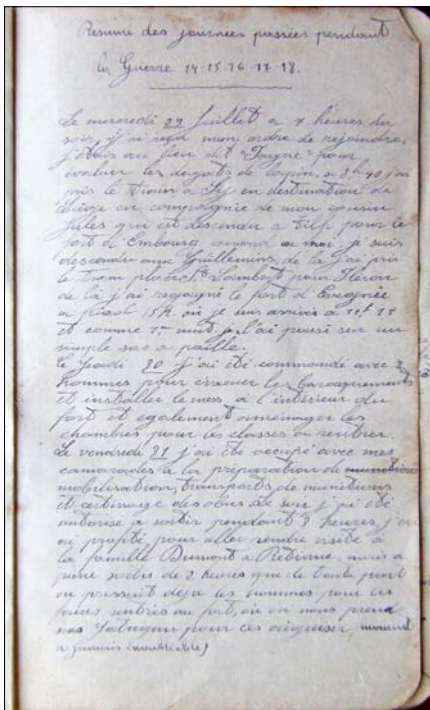 Résumé des journées passées pendant
la Guerre 14-15-16-17-18.
Le mercredi 29 Juillet a 7 heures du
soir, j'ai reçu mon ordre de rejoindre,
j'étais au lieu dit pour
évaluer les dégats de lapin. a 8h40 j'ai
pris le Tram a en destination de
Liège en compagnie de mon cousin
Jules qui est descendu a Tilff pour le
fort d'Embourg quand a moi je suis
descendu aux Guillemins, de la j'ai pris
le Tram place St Lambert pour Fléron
de la j'ai rejoint le fort d'Evegnée
a pied où je suis arrivé a
et comme nuit je l'ai passé sur un
simple sac a paille.
Le Jeudi 30 j'ai été commandé avec
hommes pour évacuer les baraquements
et installer le mess a l'intérieur du
fort et également aménager les
chambres pour les classes a rentrer.
Le vendredi 31 j'ai été occupé avec mes
camarades a la préparation de
mobilisation, transports de munitions
et sertissage des obus. Le soir j'ai été
autorisé a sortir pendant 3 heures, j'en
ai profité pour aller rendre visite à
la famille Dumont a Retinne, mais a
peine sortis de 2 heures que de toute part
on pressait déjà les hommes pour
rentrés au fort, où on nous prend
nos Yatagan pour les aiguiser, moment
a jamais inoubliable)